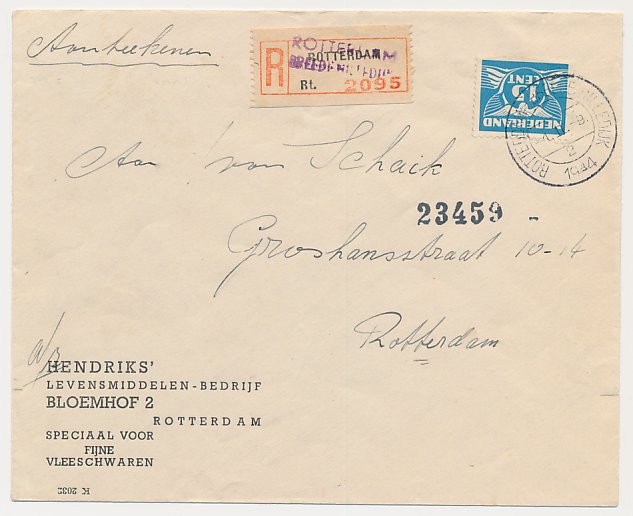 Aantekenen
ROTTERDAM
ROTTERDAM
BREEDE HILLEDIJK
R
Rt. 2095
15
CENT
NEDERLAND
ROTTERDAM
HILLEDIJK
1944
Aan van Schaik
23459 -
Groshansstraat 10-14
Rotterdam
a/z
HENDRIKS'
LEVENSMIDDELEN-BEDRIJF
BLOEMHOF 2
ROTTERDAM
SPECIAAL VOOR
FIJNE
VLEESCHWAREN
K 2032